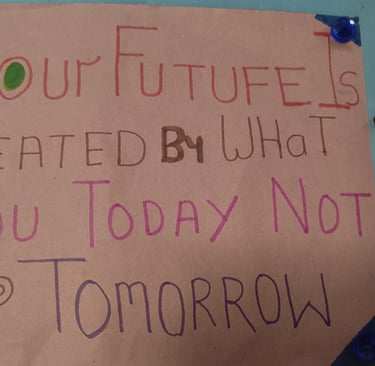 our FUTUFE Is
EATED By WHaT
OU TODAY NOT
TOMORROW